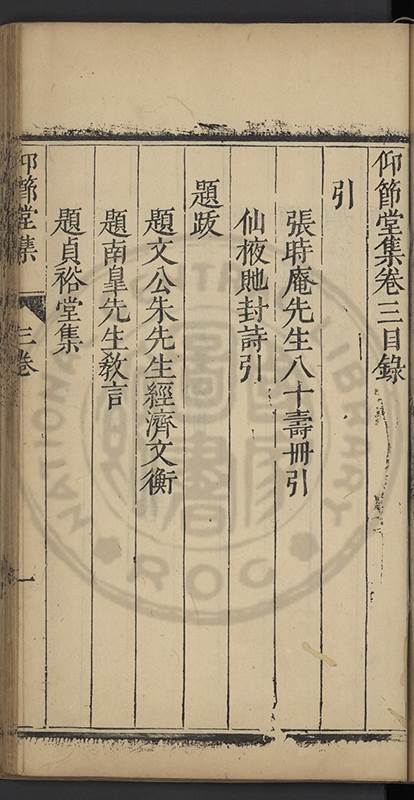 仰節堂集卷三目錄
引
張時庵先生八十壽冊引
仙掖貤封詩引
題跋
題文公朱先生經濟文衡
題南皇先生敎言
題貞裕堂集
仰節堂集
三卷
一